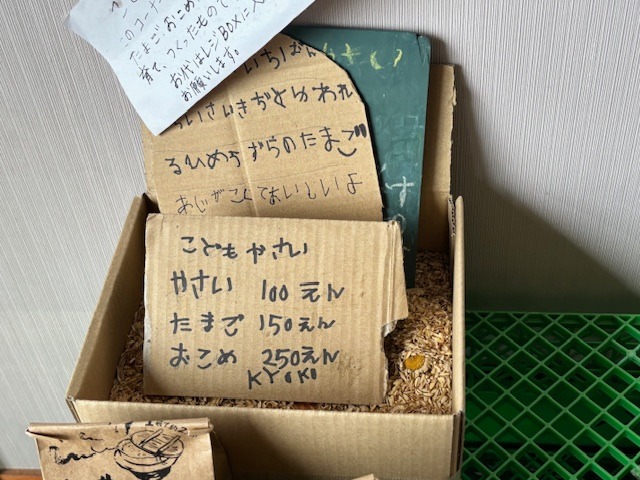 のコーナー
たまご おこめ
育て、つくったもので
お代はレジBOXに入
お願いします。
いちばん
ちいさいきぢとゆわれ
るひめうずらのたまご
あじがこくておいしいよ
こどもやさい
やさい 100えん
たまご 150えん
おこめ 250えん
KYOKO